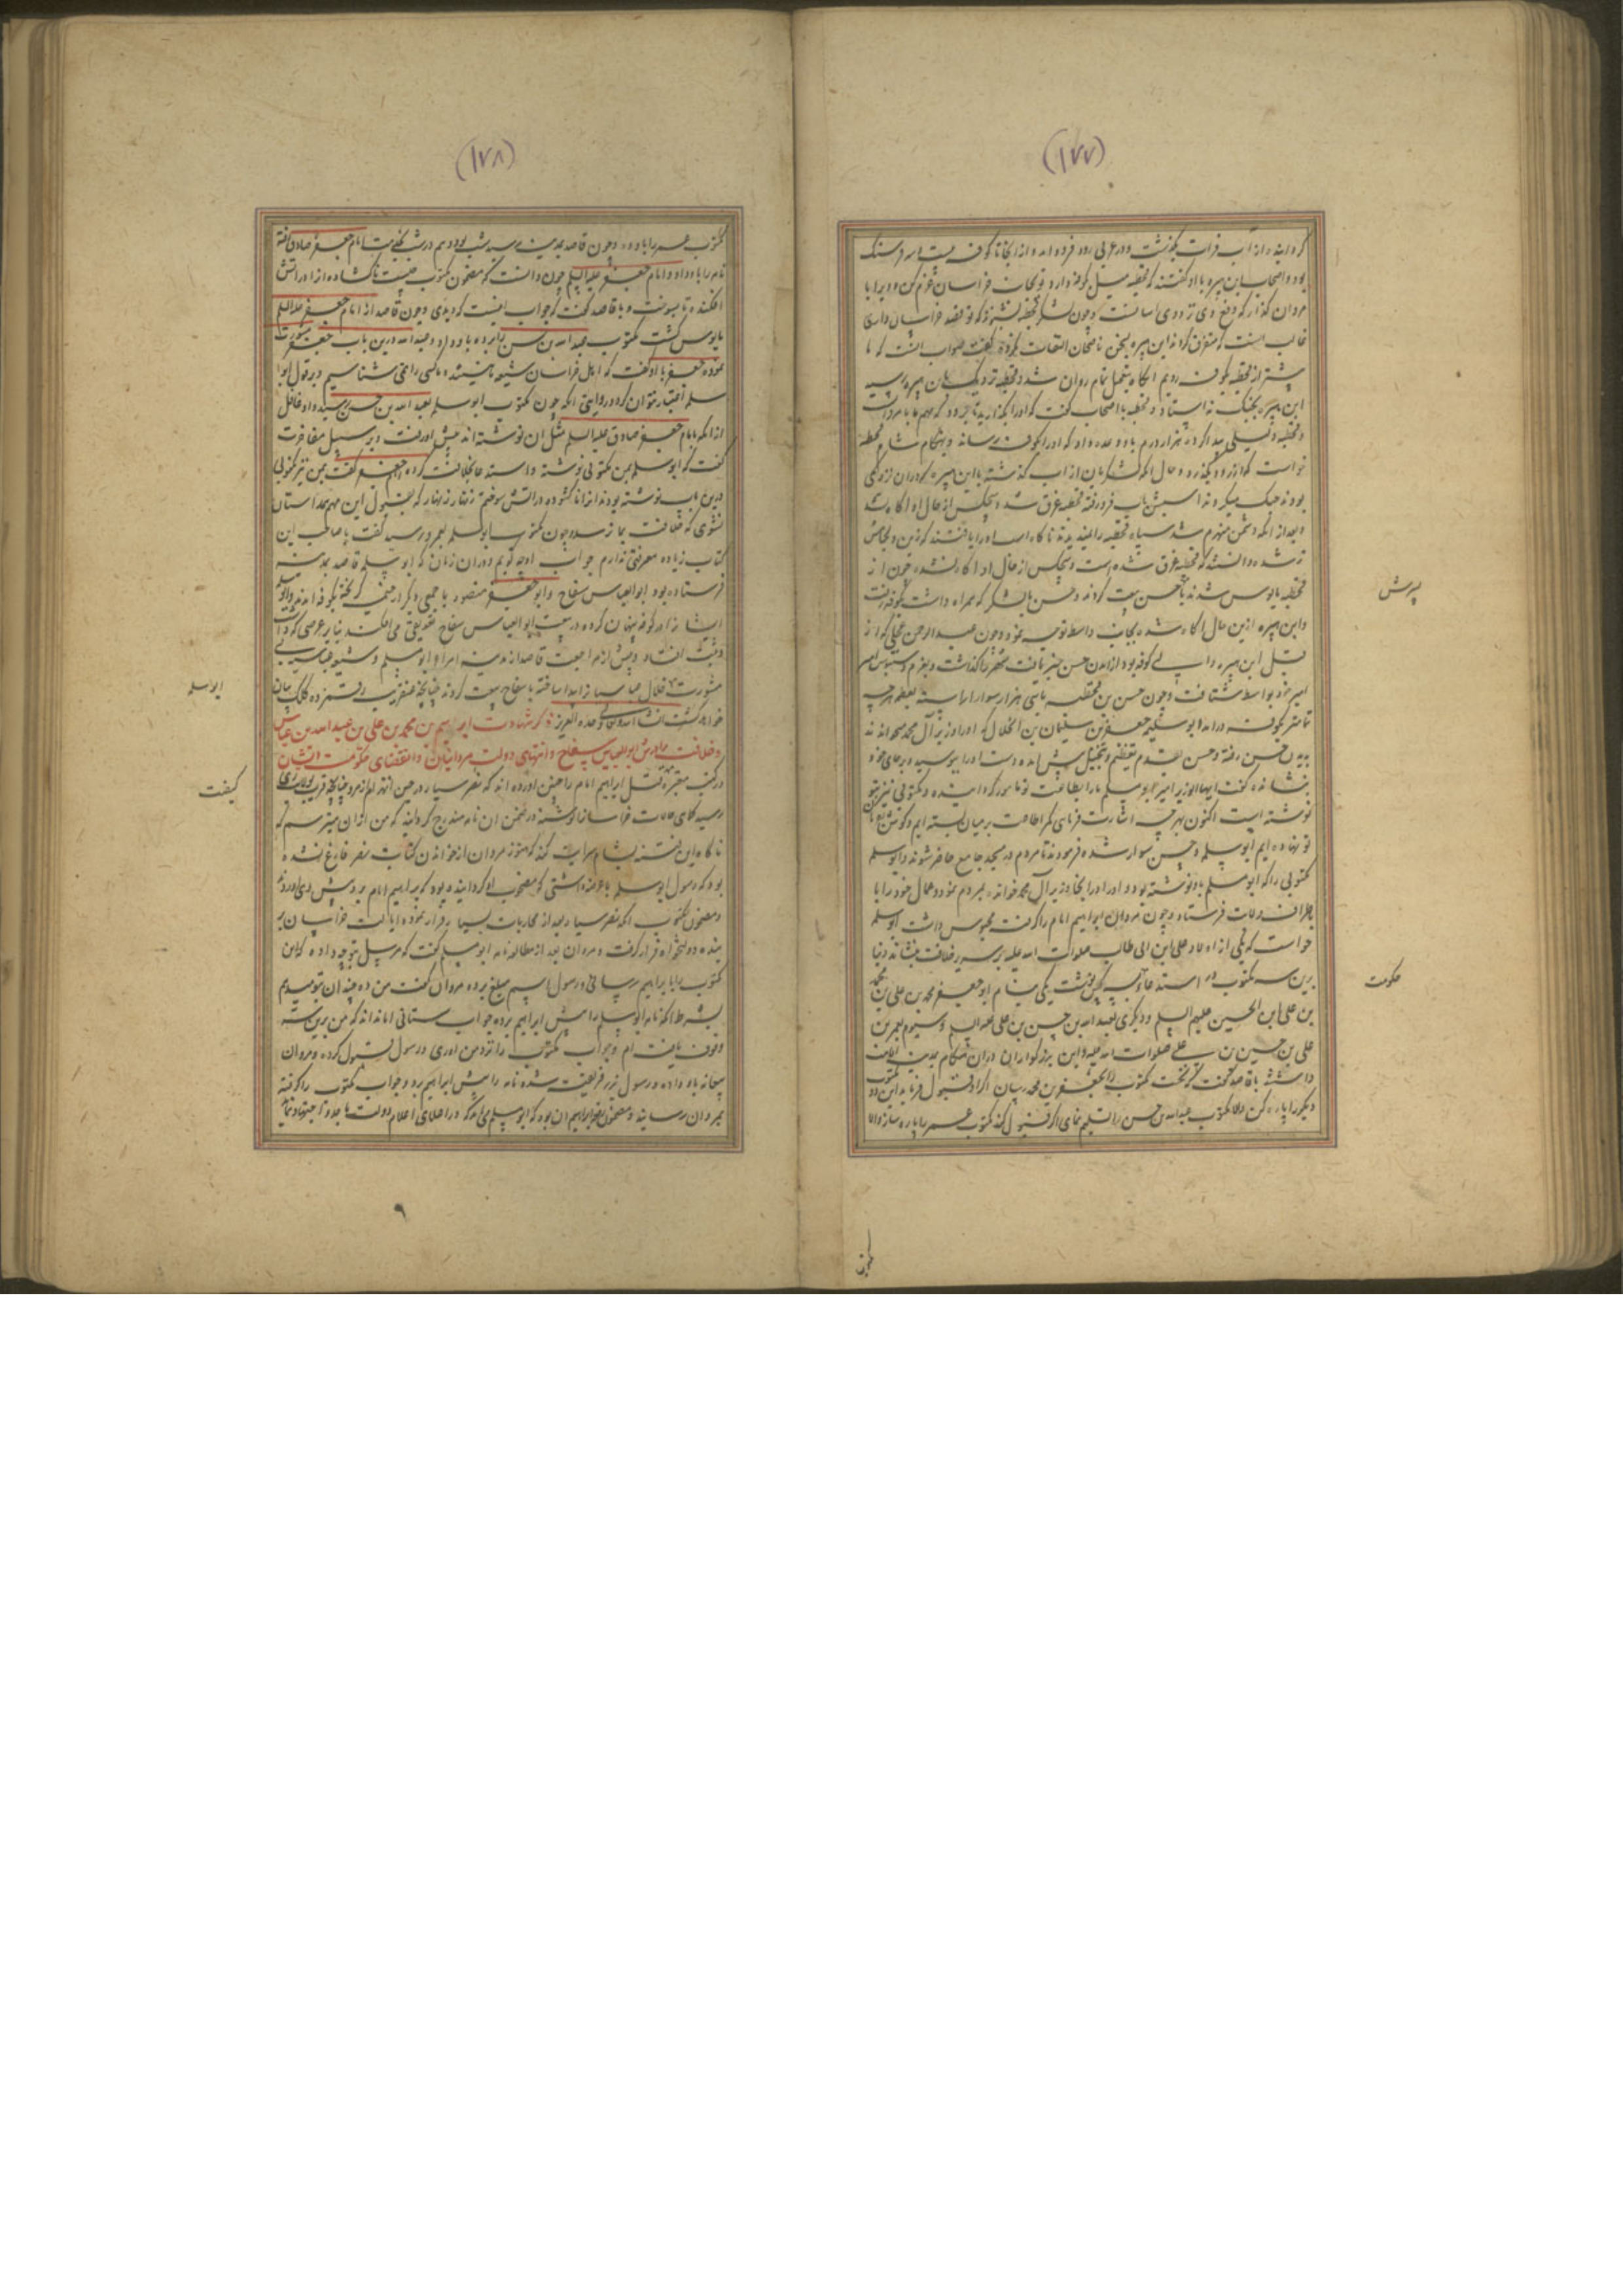 (۱۷۷)
کردانیده از آب فرات بگذشت و در غربی رود فرود امد و از انجا تا کوفه بیست و سه فرسنک
بود و اصحاب ابن هبیره با او گفتند که قحطبه میل کوفه دارد تو بجانب خراسان عزم کن و ویرا با
مروان گذار که دفع وی نزد وی اسانست و چون لشکر قحطبه بشنوند که تو قصد خراسان داری
غالب انست که متفرق کردند ابن هبیره بسخن ناصحان التفات نکرده گفت صواب انست که ما
پیشتر از قحطبه بکوفه رویم انکاه بتعجیل تمام روان شد و قحطبه نزدیک بابن هبیره رسید
ابن هبیره بجنک نه استاد و قحطبه با اصحاب گفت که او را بگذارید تا برود که مهم ما با مردان
و قحطبه دلیلی پیدا کرد و هزار درم باو وعده داد که او را بکوفه رساند و بهنکام شام قحطبه
خواست که از رود بگذرد و حال انکه لشکریان از آب گذشته با ابن هبیره
بودند جنک میکردند اسبش باب فرو رفته قحطبه غرق شد و هیچکس از حال او اکاه نشد
و بعد از انکه دشمن منهزم شد سپاه قحطبه را ندیدند ناکاه اسب او را یافتند که زین و لجامش
تر شده دانستند که قحطبه غرق شده است و هیچکس از حال او اکاه نشد چون از
قحطبه مایوس شدند با حسن بیعت کردند و حسن با لشکر که همراه داشت بکوفه رفت
و ابن هبیره ازین حال اکاه شده بجانب واسط توجه نمود و چون عبد الرحمن عجلی که از
قبل ابن هبیره والی کوفه بود از امدن حسن خبر یافت شهر را گذاشت و بعزم دستبوس امیر
امیر خود بواسط شتافت و چون حسن بن قحطبه با سی هزار سوار اراسته بعظمت هرچه
تمامتر بکوفه درامد ابو سلمه جعفر بن سلیمان بن الخلال که او را وزیر آل محمد میخواندند
بدیدن حسن رفته و حسن بقدوم تعظیم و تبجیل پیش امده دست او را ببوسید و بر جای خود
بنشاند و گفت ایها الوزیر امیر ابو مسلم ما را بطاعت تو مامور گردانیده و مکتوبی نیز بتو
نوشته است اکنون بهرچه اشارت فرمایی کمر اطاعت بر میان بسته ایم و گوش بفرمان
تو نهاده ایم ابو سلمه و حسن سوار شده فرمودند تا مردم در مسجد جامع حاضر شوند و ابو سلمه
مکتوبی را که ابو مسلم باو نوشته بود و او را در انجا وزیر آل محمد خوانده بمردم نمود و عمال خود را با
طراف ولایات فرستاد و چون مروان ابراهیم امام را گرفت محبوس داشت ابو سلمه
خواست که یکی از اولاد علی ابن ابی طالب صلوات الله علیه بر سریر خلافت بنشاند و بنا
برین سه مکتوب در استدعا بسه کس نوشت یکی بنام ابو جعفر محمد بن علی بن محمد
بن علی ابن الحسین علیهم السلم و دیگری بعبد الله بن حسن بن علی علیه السلم و سیوم بعمر بن
علی بن حسین بن علی صلوات الله علیه و این بزرکواران دران هنکام بمدینه اقامت
داشتند با قاصد گفت که نخست مکتوب را بجعفر بن محمد رسان اگر او قبول فرماید این دو مکتوب
دیگر را پاره کن والا مکتوب عبد الله بن حسن را تسلیم نمای اگر قبول کند مکتوب عمر را پاره ساز والا
پسرش
حکومت
(۱۷۸)
مکتوب عمر را باو ده و چون قاصد بمدینه رسید شب بود و هم در شب بخدمت امام جعفر صادق رفته
نامه را باو داد و امام جعفر علیه السلم چون دانست که مضمون مکتوب چیست ناکشاده از او در اتش
افکنده تا بسوخت و با قاصد گفت که جواب اینست که دیدی و چون قاصد از امام جعفر علیه السلم
مایوس گشت مکتوب عبد الله بن حسن را برده باو داد و عبد الله درین باب با جعفر مشورت
نموده جعفر با او گفت که اهل خراسان شیعه ما نیستند و ما کسی را نمی شناسیم و بر قول ابو
سلمه اعتبار نتوان کرد و روایتی انکه چون مکتوب ابو سلمه بعبد الله بن حسن رسید و او غافل
از انکه بامام جعفر صادق علیه السلم مثل ان نوشته اند پیش او رفت و بر سبیل مفاخرت
گفت که ابو سلمه بمن مکتوبی نوشته و استدعا خلافت کرده جعفر گفت بمن نیز مکتوبی
درین باب نوشته بودند انرا ناکشوده در اتش سوختم زنهار زنهار که بقبول این مهم همداستان
نشوی که خلافت بما نرسد و چون مکتوب ابو سلمه بعمر رسید گفت با صاحب این
کتاب زیاده معرفتی ندارم جواب او چه گویم و دران زمان که ابو سلمه قاصد بمدینه
فرستاده بود ابو العباس سفاح و ابو جعفر منصور با جمعی دیگر از حمیمه بکوفه امدند و ابو سلمه
ایشان را در کوفه پنهان کرده در بیعت ابو العباس سفاح تعویقی می افکند بنابر غرضی که داشت
وقت افتاد و پیش از مراجعت قاصد از مدینه امراء ابو مسلم و شیعه عباسیه بی
مشورت خلال عباسیان را پیدا ساخته با سفاح بیعت کردند چنانچه عنقریب رقم زده کلک بیان
خواهد گشت انشاء الله وحده العزیز ذکر شهادت ابراهیم بن محمد بن علی بن عبد الله بن عباس
و خلافت برادرش ابو العباس سفاح و انتهای دولت مروانیان و انقضای حکومت ایشان
در کتب معتبره قتل ابراهیم امام را چنین اورده اند که نصر سیار در حین انهزام از مرو چنانچه قریب بولایت ری
رسید که حالات خراسان نوشته در ضمن ان نامه مندرج گردانید که من ازان میترسم که
ناکاه این فتنه بشام سرایت کند که هنوز مروان از خواندن کتابت نصر فارغ نشده
بود که رسول ابو مسلم با عرضه داشتی که مصحوب او گردانیده بود که بابراهیم امام برد پیش وی اوردند
و مضمون مکتوب انکه نصر سیار بعد از محاربات بسیار فرار نموده ایالت خراسان بر
بنده دولتخواه قرار گرفت و مروان بعد از مطالعه نامه ابو مسلم گفت که مرسل بتو چه داده که این
مکتوب را بابراهیم رسانی و رسول اسم مبلغ برده مروان گفت من ده چندان بتو میدهم
بشرط انکه نامه ابو مسلم را پیش ابراهیم برده جواب ستانی اما نداند که من برین قصه
وقوف یافته ام و جواب مکتوب را نزد من اوری و رسول قبول کرده مروان
بیعانه باو داده و رسول بزر فریفته شده نامه را پیش ابراهیم برد و جواب مکتوب را گرفته
بمروان رسانید و مضمون جواب ابراهیم ان بود که ابو مسلم می باید که در اعلای اعلام دولت ما جد و اجتهاد نماید
ابو سلمه
کیفت
۹